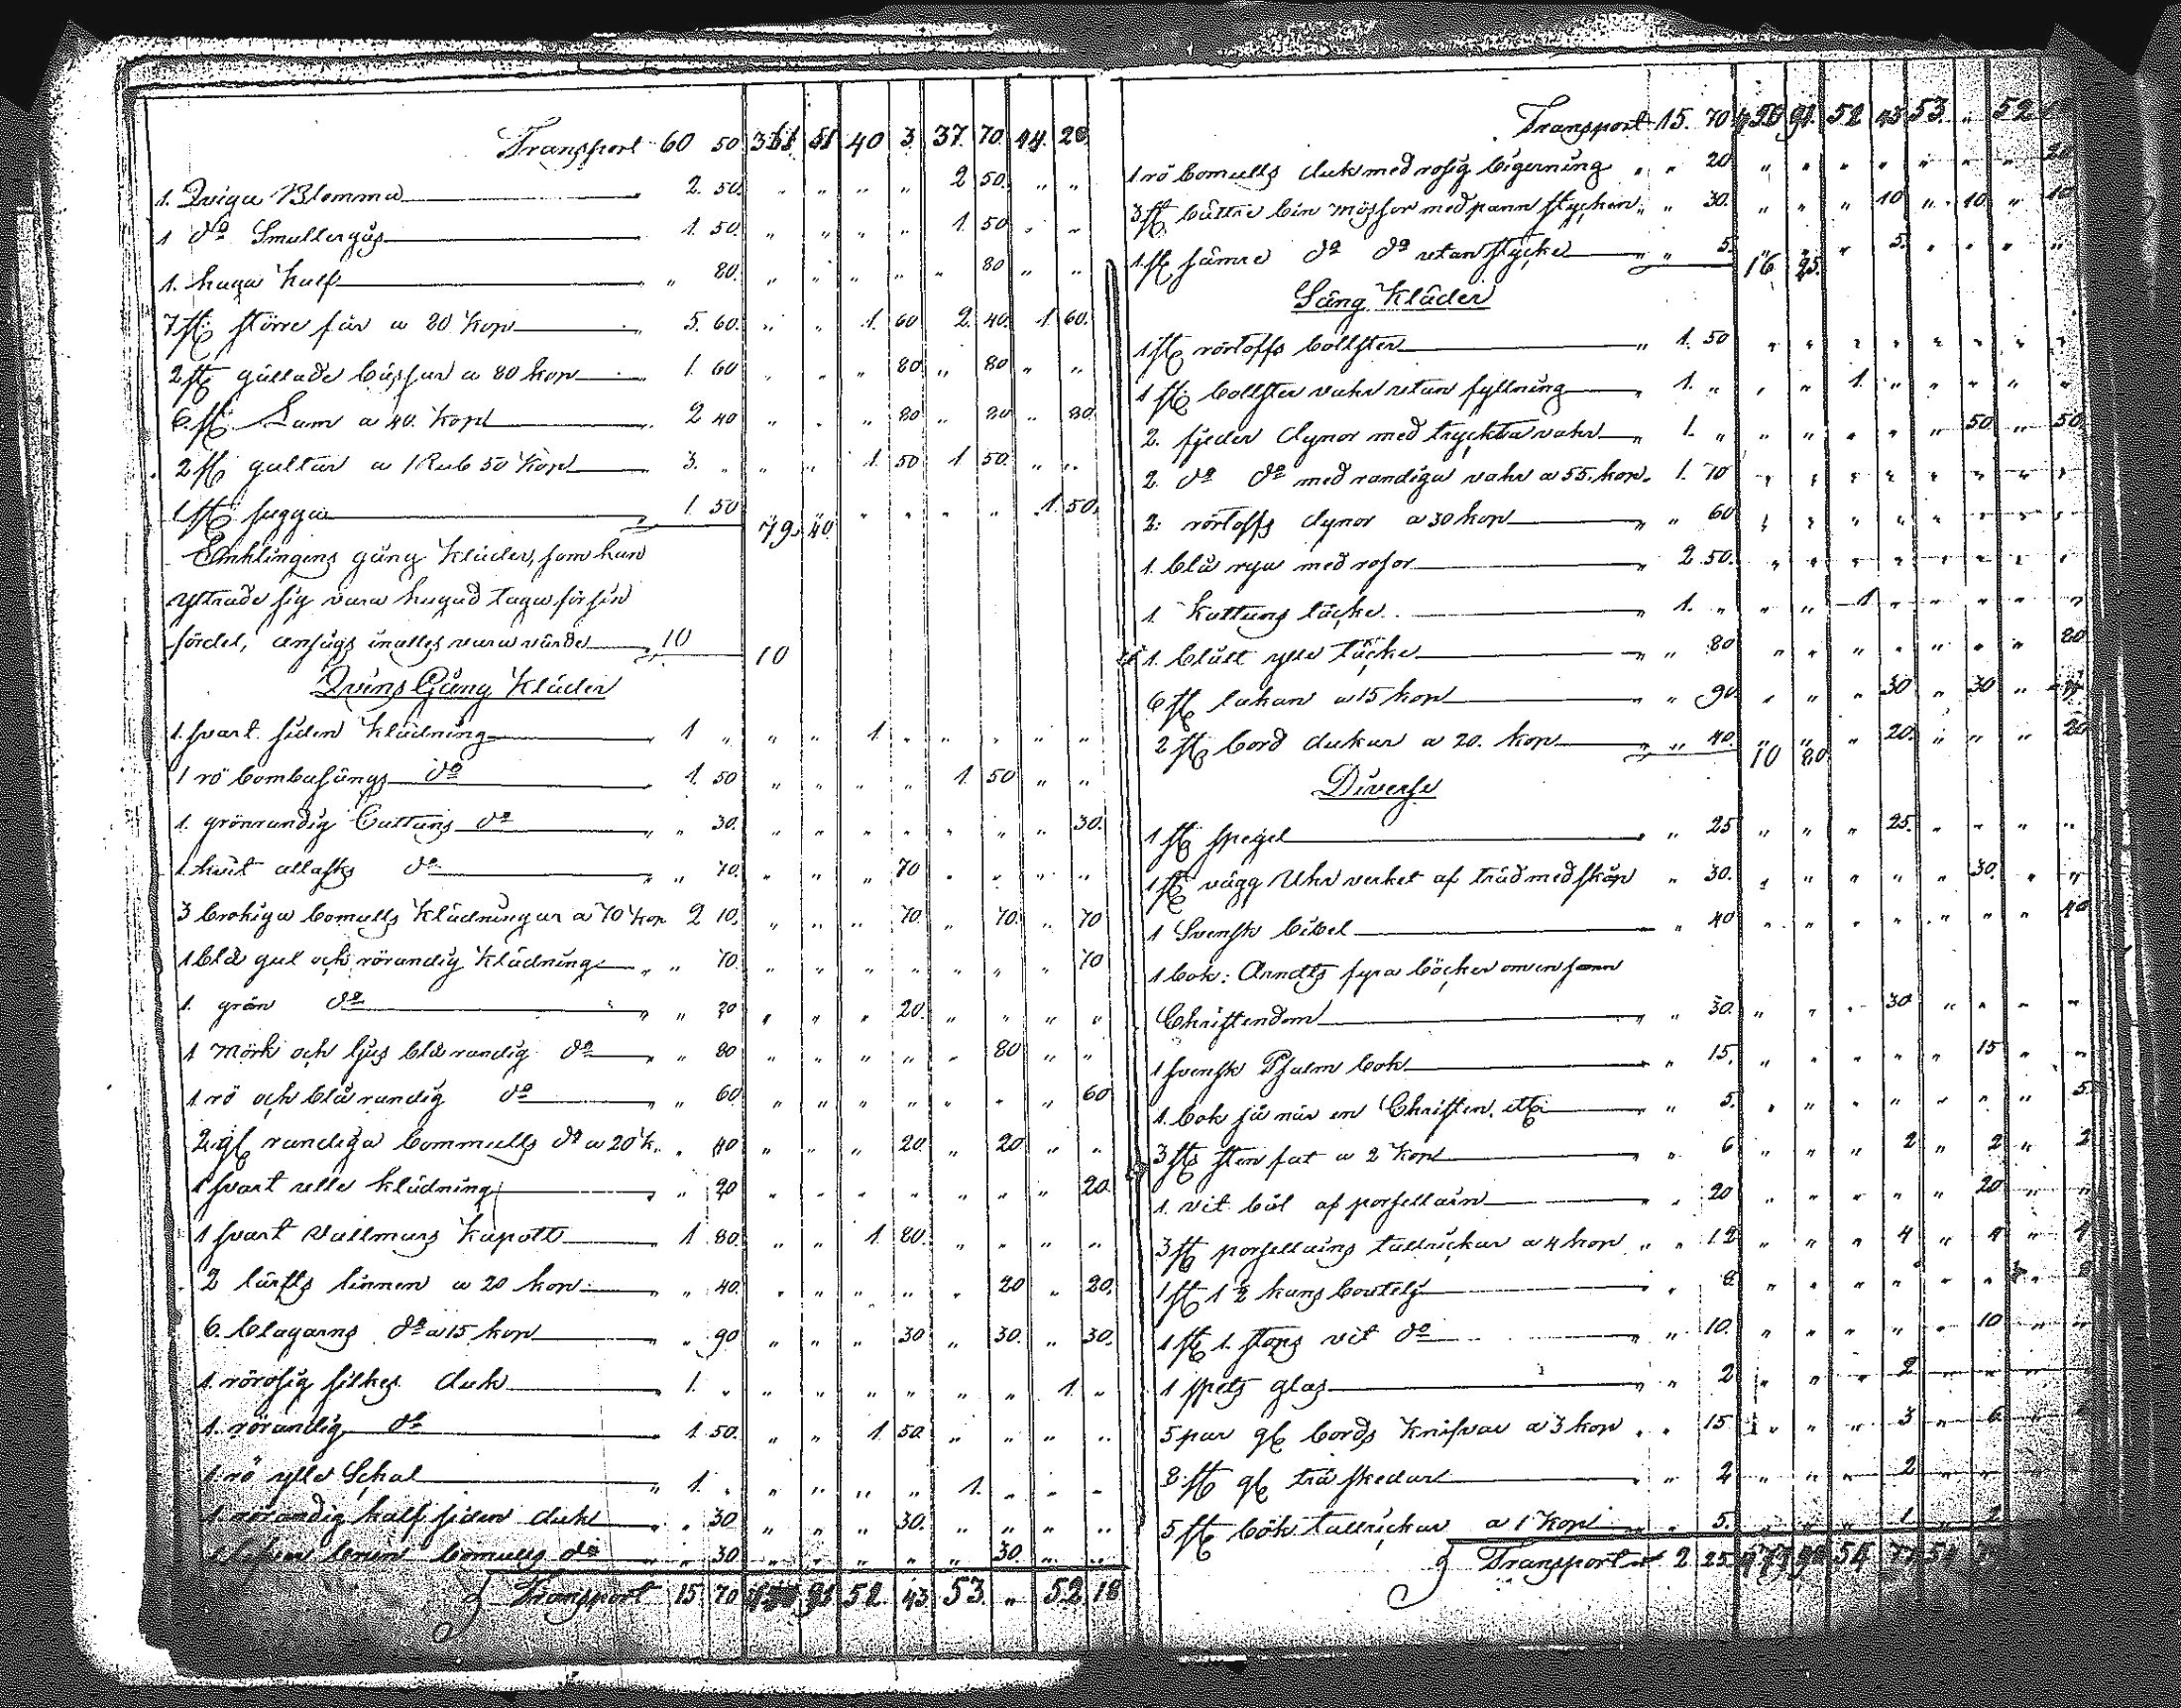 Transport 60 50 361 51 40 3 37. 70. 44. 20.
1. Qviga Blomma " 2. 50. " " " " 2 50. " "
1 do Smultergås 1. 50. " " " " 1. 50 " "
1. kuga kalf " 80. " " " " " 80 " "
7 st. större får a 80 kop 5. 60. " " 1. 60 2. 40. 1. 60.
2 st gällade bässar a 80 kop 1. 60 " " " 80. " 80 " "
6. st. Lam a 40. kop 2 40 " " " 80 " 80 " 80.
2 st galtar a 1 Rub 50 kop 3. " " " 1. 50 1 50. " "
1 st sugga 1. 50 79. 40 " " " " 1. 50.
Enklingens gång kläder, som han
yttrade sig vara hugad taga för sin
fördel, ansågs inalles vara värde 10 10
Qvins Gång Kläder
1. svart siden klädning 1 " " " 1. " " " " "
1 rö bombasångs do 1. 50 " " " " 1. 50 " "
1. grönrandig Cattuns do " " 30. " " " " " " " 30.
1. hvit allasks do " " 70. " " " 70 " " " "
3 brokiga bomulls klädningar a 70 kop 2 10. " " " 70. " 70. " 70
1 blå gul och rörandig klädning " " 70. " " " " " " " 70
1. grön do " " 20 " " " 20. " " " "
1 mörk och ljus blå randig do " " 80 " " " " " 80 " "
1 rö och blå randig do " " 60. " " " " " " " 60
2 gl randiga bommulls do a 20 k. " 40 " " " 20. " 20 " "
1 svart ulle klädning " " 20 " " " " " " " 20.
1 svart Vallmars kapott 1 80. " " 1. 80. " " " "
2 lärfts linnen a 20 kop " " 40. " " " " " 20 " 20.
6. blagarns do a 15 kop " 90 " " " 30 " 30. " 30.
1. rörosig silkes duk 1. " " " " " " " 1. "
1. rörandig do 1. 50. " " 1. 50. " " " "
1. rö ylle Schal " 1. " " " " " 1. " " "
1. rörandig half siden duk " " 30 " " " 30. " " " "
bomulls do " " 30 " " " " " 30. " "
Transport 15. 70 91 52. 43 53. " 52. 18
Transport 15. 70 91. 52 43 53. " 52
1 rö bomulls duk med rosig bigerning " " 20 " " " " " " " 20
3 st bättre bin mössor med pann stycken " " 30. " " " 10 " 10. " 10
1 st sämre do do utan stycke " " 5. 16 95. " 5. " " " "
Säng Kläder
1 st rörtoffs bollster " 1. 50 " " " " " " " "
1 st bollster vahr utan fyllning 1. " " " 1. " " " " "
2. fjeder dynor med tryckta vahr " 1. " " " " " " 50. " 50.
2. do do med randiga vahr a 55. kop. 1. 10 " " " " " " " "
2. rörtoffs dynor a 30 kop " " 60 " " " " " " " "
1. blå rya med rosor " 2. 50. " " " " " " " "
1 Kattuns täcke " 1. " " " 1 " " " " "
1. blått ylle täcke " " 80 " " " " " " " 80
6 st lakan a 15 kop " " 90. " " " 30 " 30 "
2 st bord dukar a 20. kop " " 40. 10 80 " 20. " " " 20
Diverse
1 st spegel " " 25 " " " 25. " " " "
1 st vägg Uhr verket af träd med skåp " 30. " " " " " 30. " "
1 Svensk bibel " 40 " " " " " " " 40
1 bok: Arndts fyra böcker om en sann
Christendom " " 30. " " " 30 " " " "
1 svensk Psalm bok " " 15. " " " " " 15 " "
1. bok så när en Christen. etc " " 5. " " " " " " " 5.
3 st sten fat a 2 kop " " 6 " " " 2 " 2 " 2
1. vit bål af porsellain " " 20 " " " " " 20 " "
3 st porsellains tallrickar a 4 kop " " 12 " " " 4 " 4 " 4
1 st 1 2 kans boutelj " 8 " " " " "
1 st 1. stops vit do " " 10. " " " " " 10 " "
1 spets glas " " 2 " " " 2 " " " "
5 par gl bords knifvar a 3 kop " " 15 " " " 3 " 6. "
8 st gl trä skedar " " 2 " " " 2 " " "
5 st bök tallrickar a 1 kop " " 5. " " " 1 " 2
Transport 2 25. 54